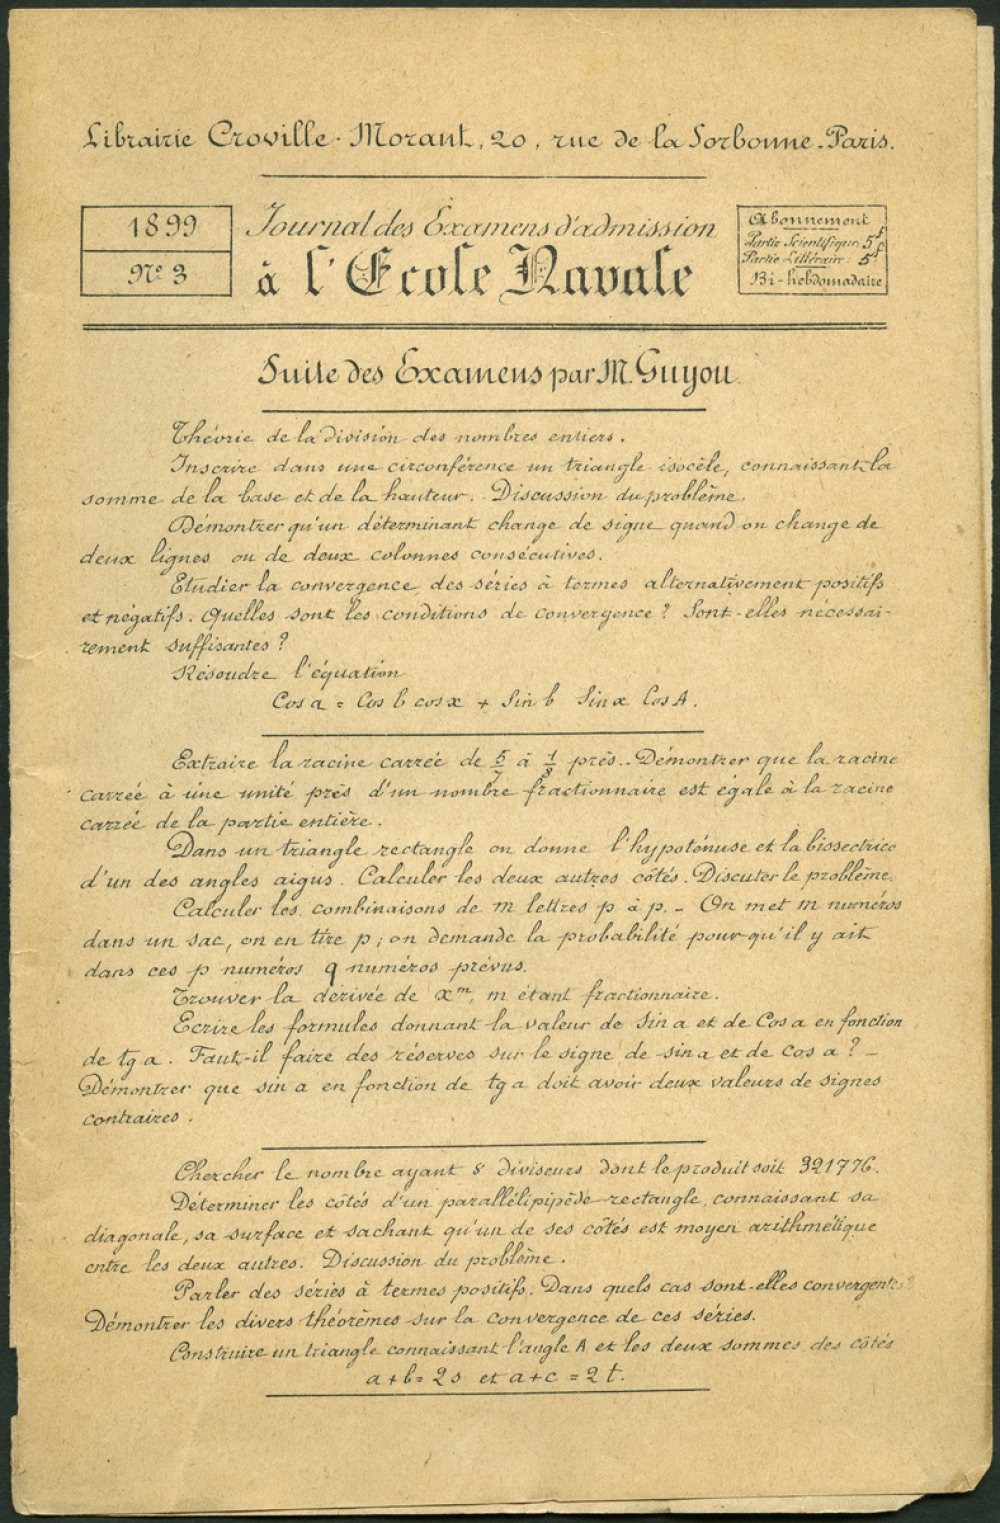 Librairie Croville-Morant, 20, rue de la Sorbonne. Paris.
1899
N° 3
Journal des Examens d'admission
à l'Ecole Navale
Abonnement
Partie Scientifique: 5f
Partie Littéraire: 5f
Bi-hebdomadaire
Suite des Examens par M. Guyou.
Théorie de la division des nombres entiers.
Inscrire dans une circonférence un triangle isocèle, connaissant la
somme de la base et de la hauteur. - Discussion du problème.
Démontrer qu'un déterminant change de signe quand on change de
deux lignes ou de deux colonnes consécutives.
Etudier la convergence des séries à termes alternativement positifs
et négatifs. Quelles sont les conditions de convergence? Sont-elles nécessai-
rement suffisantes?
Résoudre l'équation
Cos a = Cos b cos x + Sin b Sin x Cos A.
Extraire la racine carrée de 5/7 à 1/8 près. - Démontrer que la racine
carrée à une unité près d'un nombre fractionnaire est égale à la racine
carrée de la partie entière.
Dans un triangle rectangle on donne l'hypoténuse et la bissectrice
d'un des angles aigus. Calculer les deux autres côtés. Discuter le problème.
Calculer les combinaisons de m lettres p à p. - On met m numéros
dans un sac, on en tire p; on demande la probabilité pour qu'il y ait
dans ces p numéros q numéros prévus.
Trouver la dérivée de x^m, m étant fractionnaire.
Ecrire les formules donnant la valeur de Sin a et de Cos a en fonction
de tg a. Faut-il faire des réserves sur le signe de sin a et de cos a? -
Démontrer que sin a en fonction de tg a doit avoir deux valeurs de signes
contraires.
Chercher le nombre ayant 8 diviseurs dont le produit soit 321776.
Déterminer les côtés d'un parallélipipède rectangle, connaissant sa
diagonale, sa surface et sachant qu'un de ses côtés est moyen arithmétique
entre les deux autres. Discussion du problème.
Parler des séries à termes positifs. Dans quels cas sont-elles convergentes?
Démontrer les divers théorèmes sur la convergence de ces séries.
Construire un triangle connaissant l'angle A et les deux sommes des côtés
a + b = 2s et a + c = 2t.